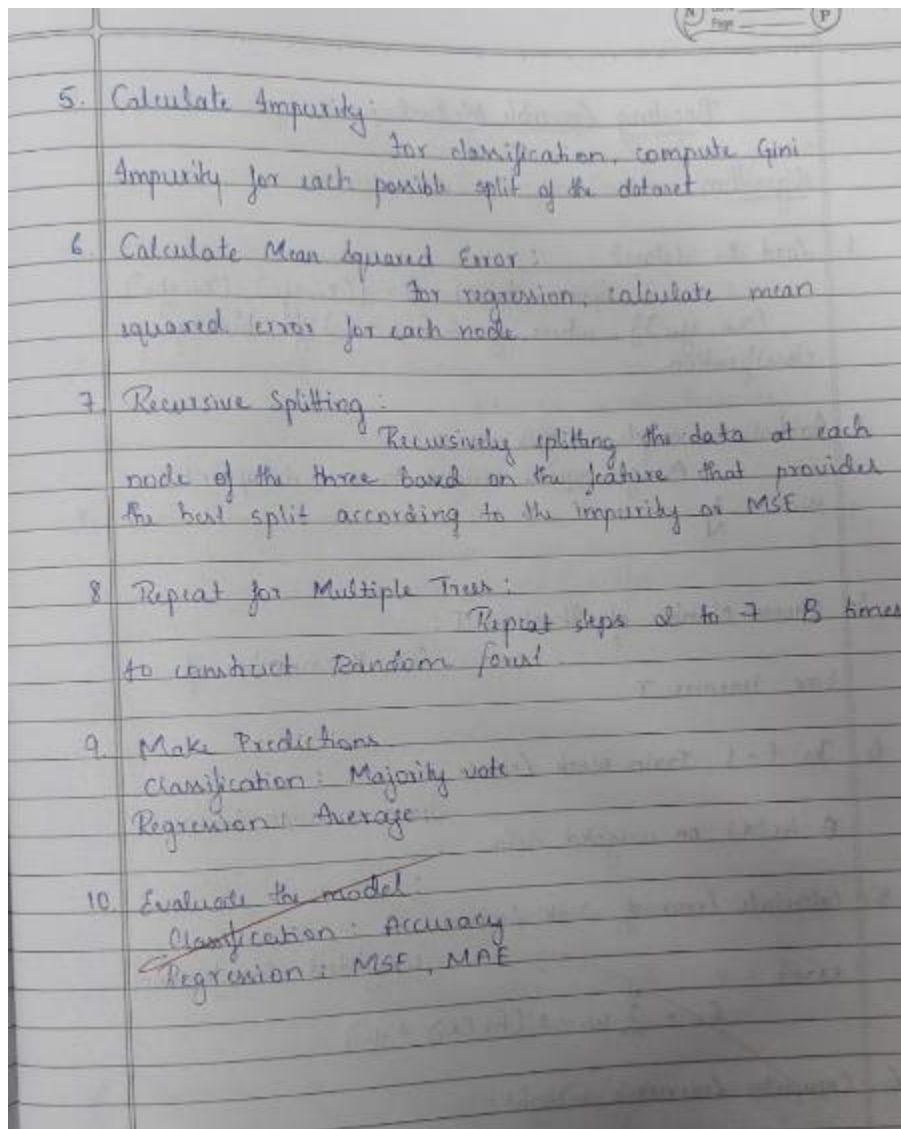 N
Page
P
5. Calculate Impurity:
For classification, compute Gini
Impurity for each possible split of the dataset
6 Calculate Mean Squared Error:
For regression, calculate mean
squared error for each node.
7 Recursive Splitting:
Recursively splitting the data at each
node of the three based on the feature that provides
the best split according to the impurity or MSE
8 Repeat for Multiple Trees:
Repeat steps 2 to 7 B times
to construct Random forest.
9. Make Predictions.
Classification: Majority vote
Regression: Average
10. Evaluate the model:
Classification: Accuracy
Regression: MSE, MAE